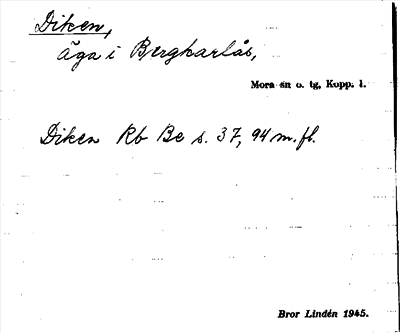 Diken,
äga i Bergkarlås,
Mora sn o. tg, Kopp. l.
Diken Rb Be s. 37, 94 m.fl.
Bror Lindén 1945.